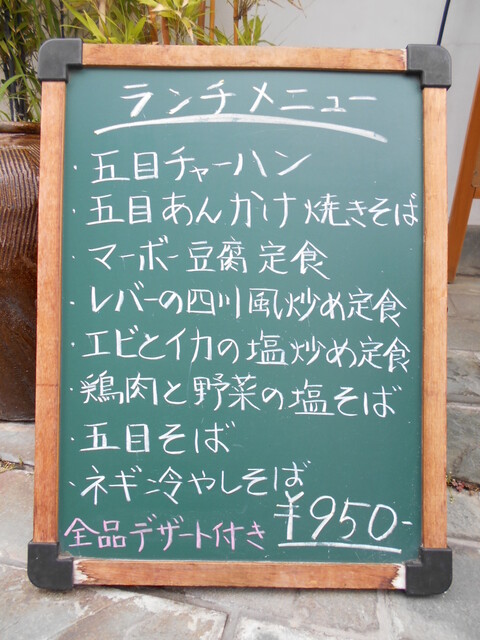 ランチメニュー
・五目チャーハン
・五目あんかけ焼きそば
・マーボー豆腐定食
・レバーの四川風炒め定食
・エビとイカの塩炒め定食
・鶏肉と野菜の塩そば
・五目そば
・ネギ冷やしそば
¥950-
全品デザート付き